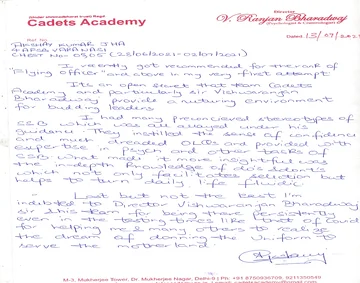 Cadets Academy
Director
V. Ranjan Bharadwaj
Ref No.
Dated 13/07/202
AKSHAY KUMAR JHA
4 AFSB VARANASI
CHEST NO- 0505 (28/06/2021-02/07/2021)
I recently got recommended for the rank of
"Flying officer" and above in my very first attempt
It's an open secret that team Cadets
Academy and particularly
Bharadwaj provide a nurturing environment
for budding leaders
I had many preconceived stereotypes of
SSB which was all allayed under his
guidance. They instilled the sense of confidence
and much dreaded OLQs and provided with
expertise in Psych and other tasks of
SSB. What made it more insightful was
the in-depth knowledge of do's & don'ts
which not only facilitates selection but
helps to turn daily life
Last but not the best I'm
indebted to Director Vishwaranjan Bharadwaj
sir & his team for being there persistently
even in the testing times like that of Covid
for helping me & many others to realize
the dream of donning the Uniform to
serve the motherland.
M-3, Mukherjee Tower, Dr. Mukherjee Nagar, Delhi-9